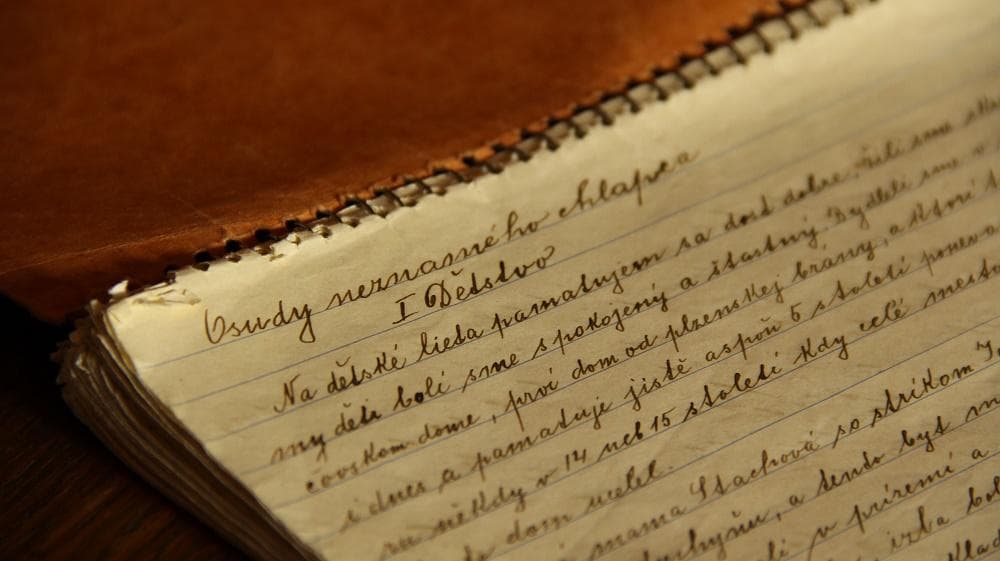 Osudy neznamého chlapca
I Dětstvo
Na dětské lieta pamatujem sa dost dobre, žili sme
my děti bolí sme spokojený a štastný. Bydleli sme v
čovskom dome, prví dom od plzenskej brány, a který
i dnes a pamatuje jistě aspoň 5 století poneva
sa někdy v 14 neb 15 století kdy celé mesto
dom ucelel.
mama Stachová so strikom
a tendo byt
v prízemí a
izba